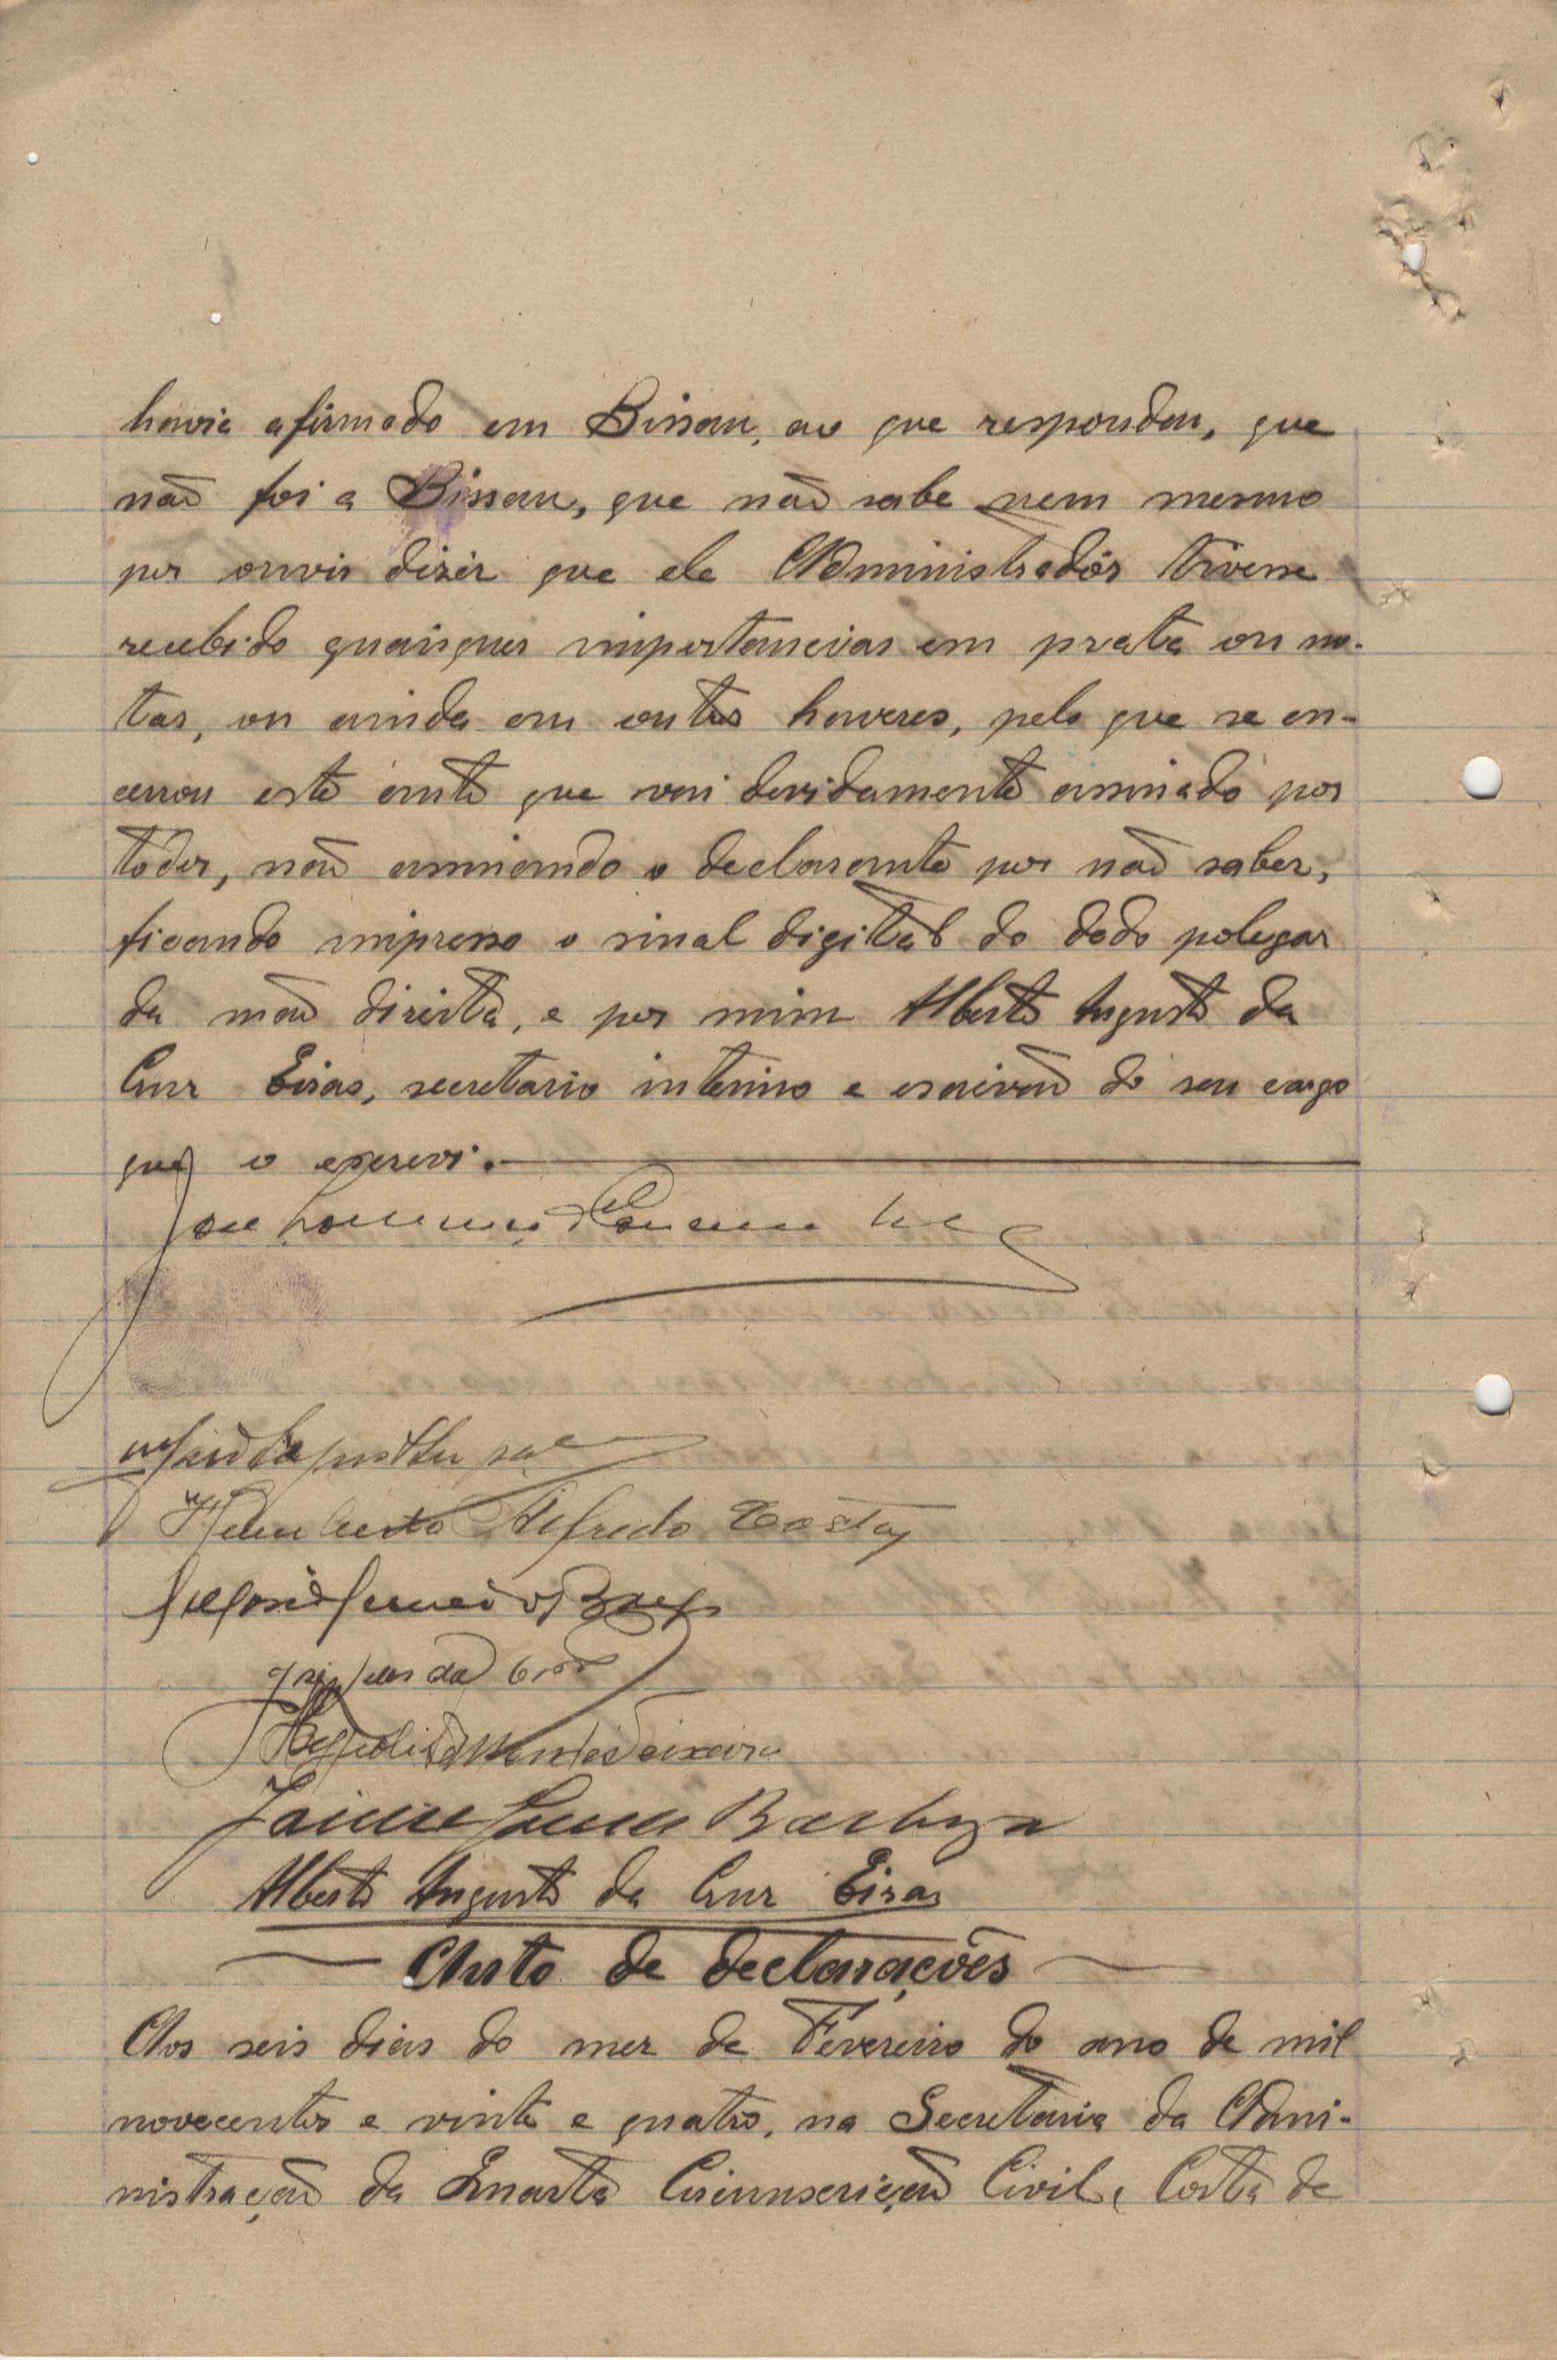 havia afirmado em Bissau, ao que respondeu, que
não foi a Bissau, que não sabe nem mesmo
por ouvir dizer que ele Administradôr tivesse
recebido quaisquer importancias em prata ou no-
tas, ou ainda em outros haveres, pelo que se en-
cerrou este auto que vai devidamente assinado por
todos, não assinando o declarante por não saber,
ficando impresso o sinal digital do dedo polegar
da mão direita, e por mim Alberto Augusto da
Cruz Eiras, secretario interino e escrivão do seu cargo
que o escrevi.
José
Humberto Alfredo Costa
Teixeira
Jaime Barboza
Alberto Augusto da Cruz Eiras
Auto de declarações
Aos seis dias do mez de Fevereiro do ano de mil
novecentos e vinte e quatro, na Secretaria da Admi-
nistração da Quarta Circunscrição Civil, Costa de